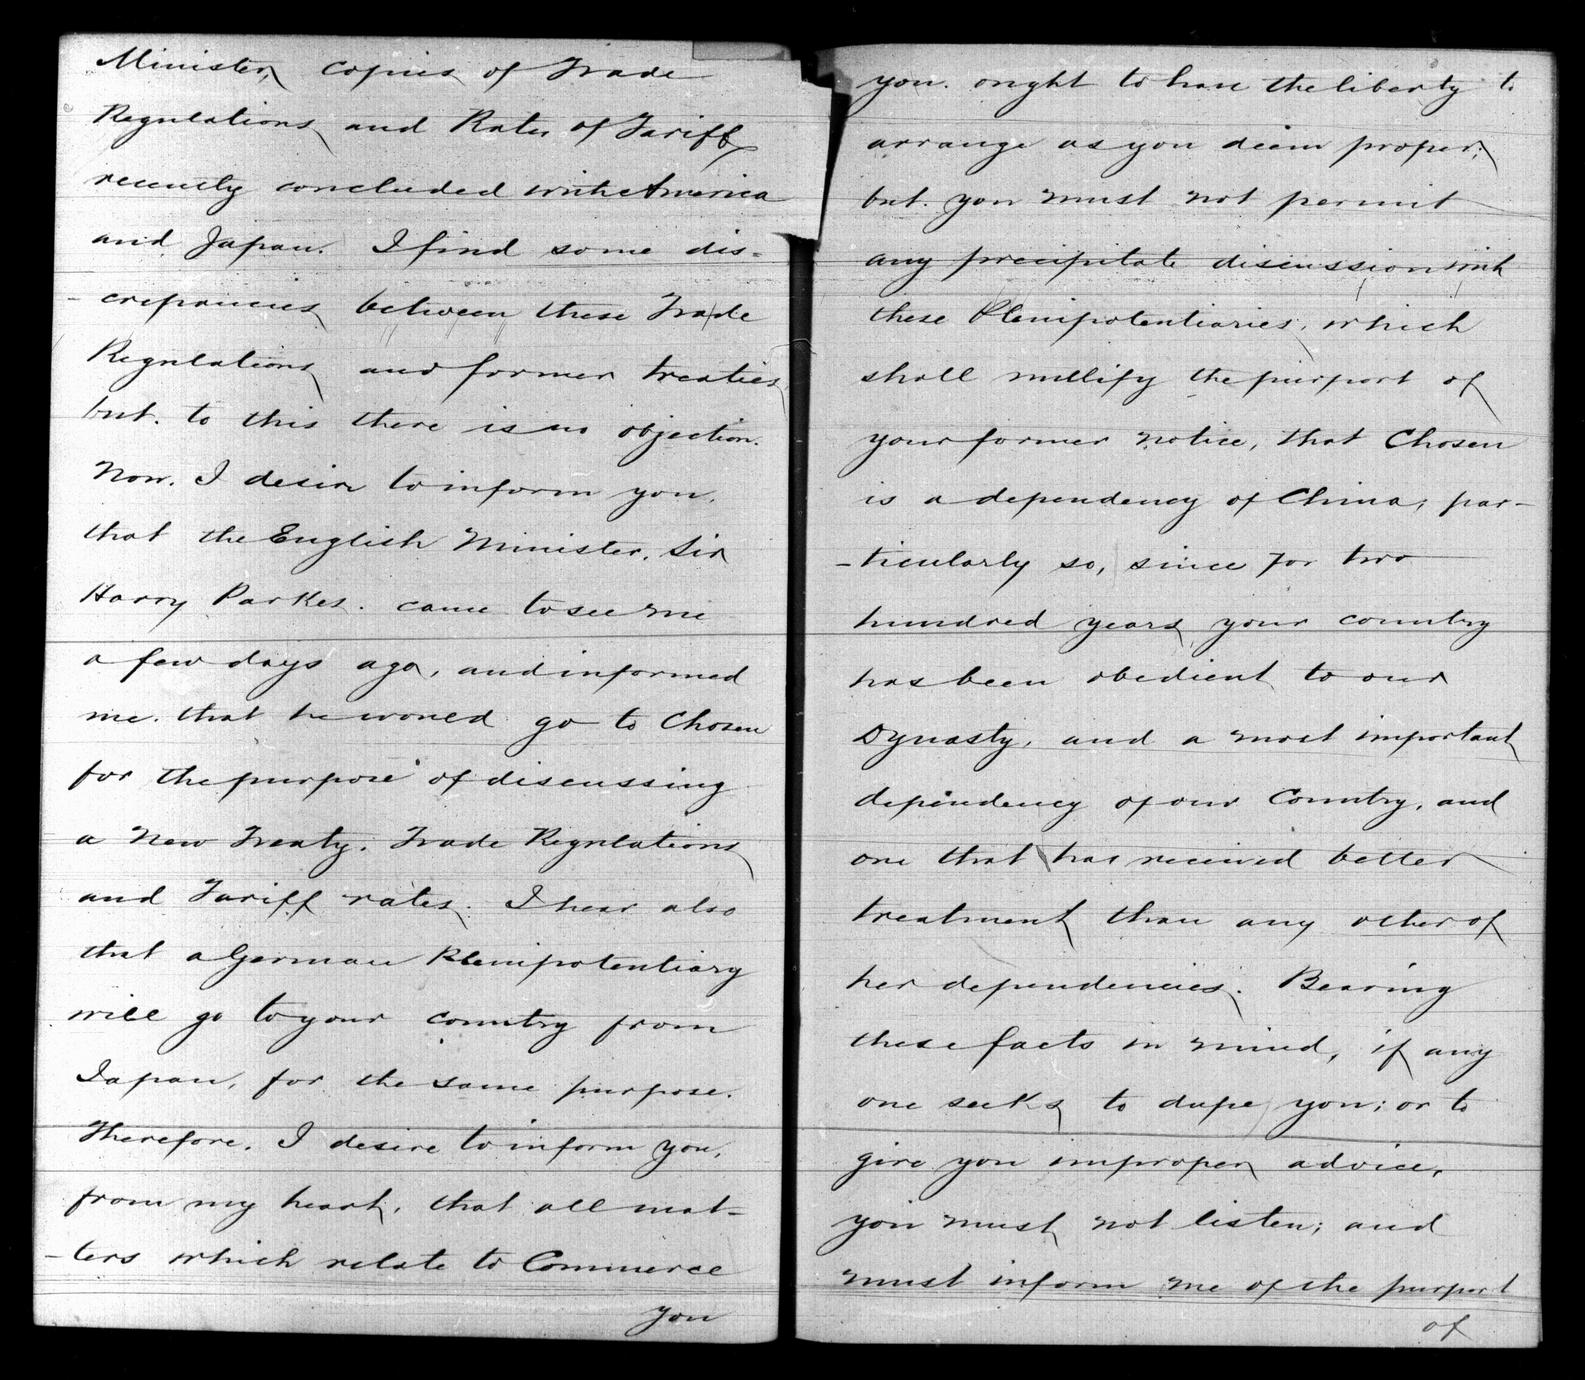 Minister, copies of Trade
Regulations, and Rates of Tariff,
recently concluded with America
and Japan. I find some dis-
-crepancies between these Trade
Regulations, and former treaties,
but. to this there is no objection.
Now. I desire to inform you.
that the English Minister. Sir
Harry Parkes. came to see me
a few days ago, and informed
me. that he would go to Chosen
for the purpose of discussing
a New Treaty. Trade Regulations,
and Tariff rates. I hear also
that a German Plenipotentiary
will go to your country from
Japan, for the same purpose.
Therefore. I desire to inform you,
from my heart, that all mat-
-ters which relate to Commerce
you
you. ought to have the liberty to
arrange as you deem proper;
but. you must not permit
any precipitate discussion with
these Plenipotentiaries, which
shall nullify the purport of
your former notice, that Chosen
is a dependency of China; par-
-ticularly so, since for two
hundred years, your country
has been obedient to our
Dynasty, and a most important
dependency of our Country, and
one that has received better
treatment than any other of
her dependencies. Bearing
these facts in mind, if any
one seeks to dupe you; or to
give you improper advice,
you must not listen; and
must inform me of the purport
of